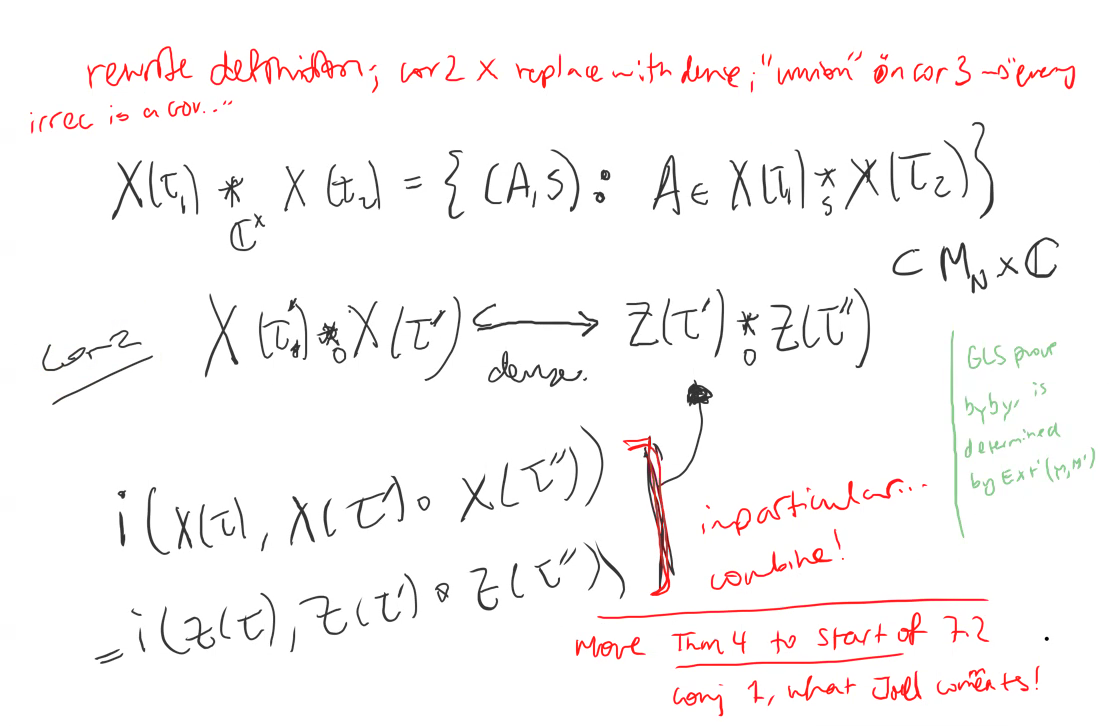 rewrite definition; cor 2 X replace with dense; "union" on cor 3 → "every
irrec is a cov..."
X(τ₁) *_{ℂ^×} X(τ₂) = { (A,s) : A ∈ X(τ₁) *_s X(τ₂) }
⊂ M_N × ℂ
cor 2
X(τ') *_0 X(τ'') ↪ Z(τ') *_0 Z(τ'')
dense.
GLS prove
by by' is
determined
by Ext'(M,M')
i(X(τ), X(τ') ∘ X(τ''))
= i(Z(τ), Z(τ') ∘ Z(τ''))
in particular...
combine!
Move Thm 4 to start of 7.2
conj 1, what Joel comments!